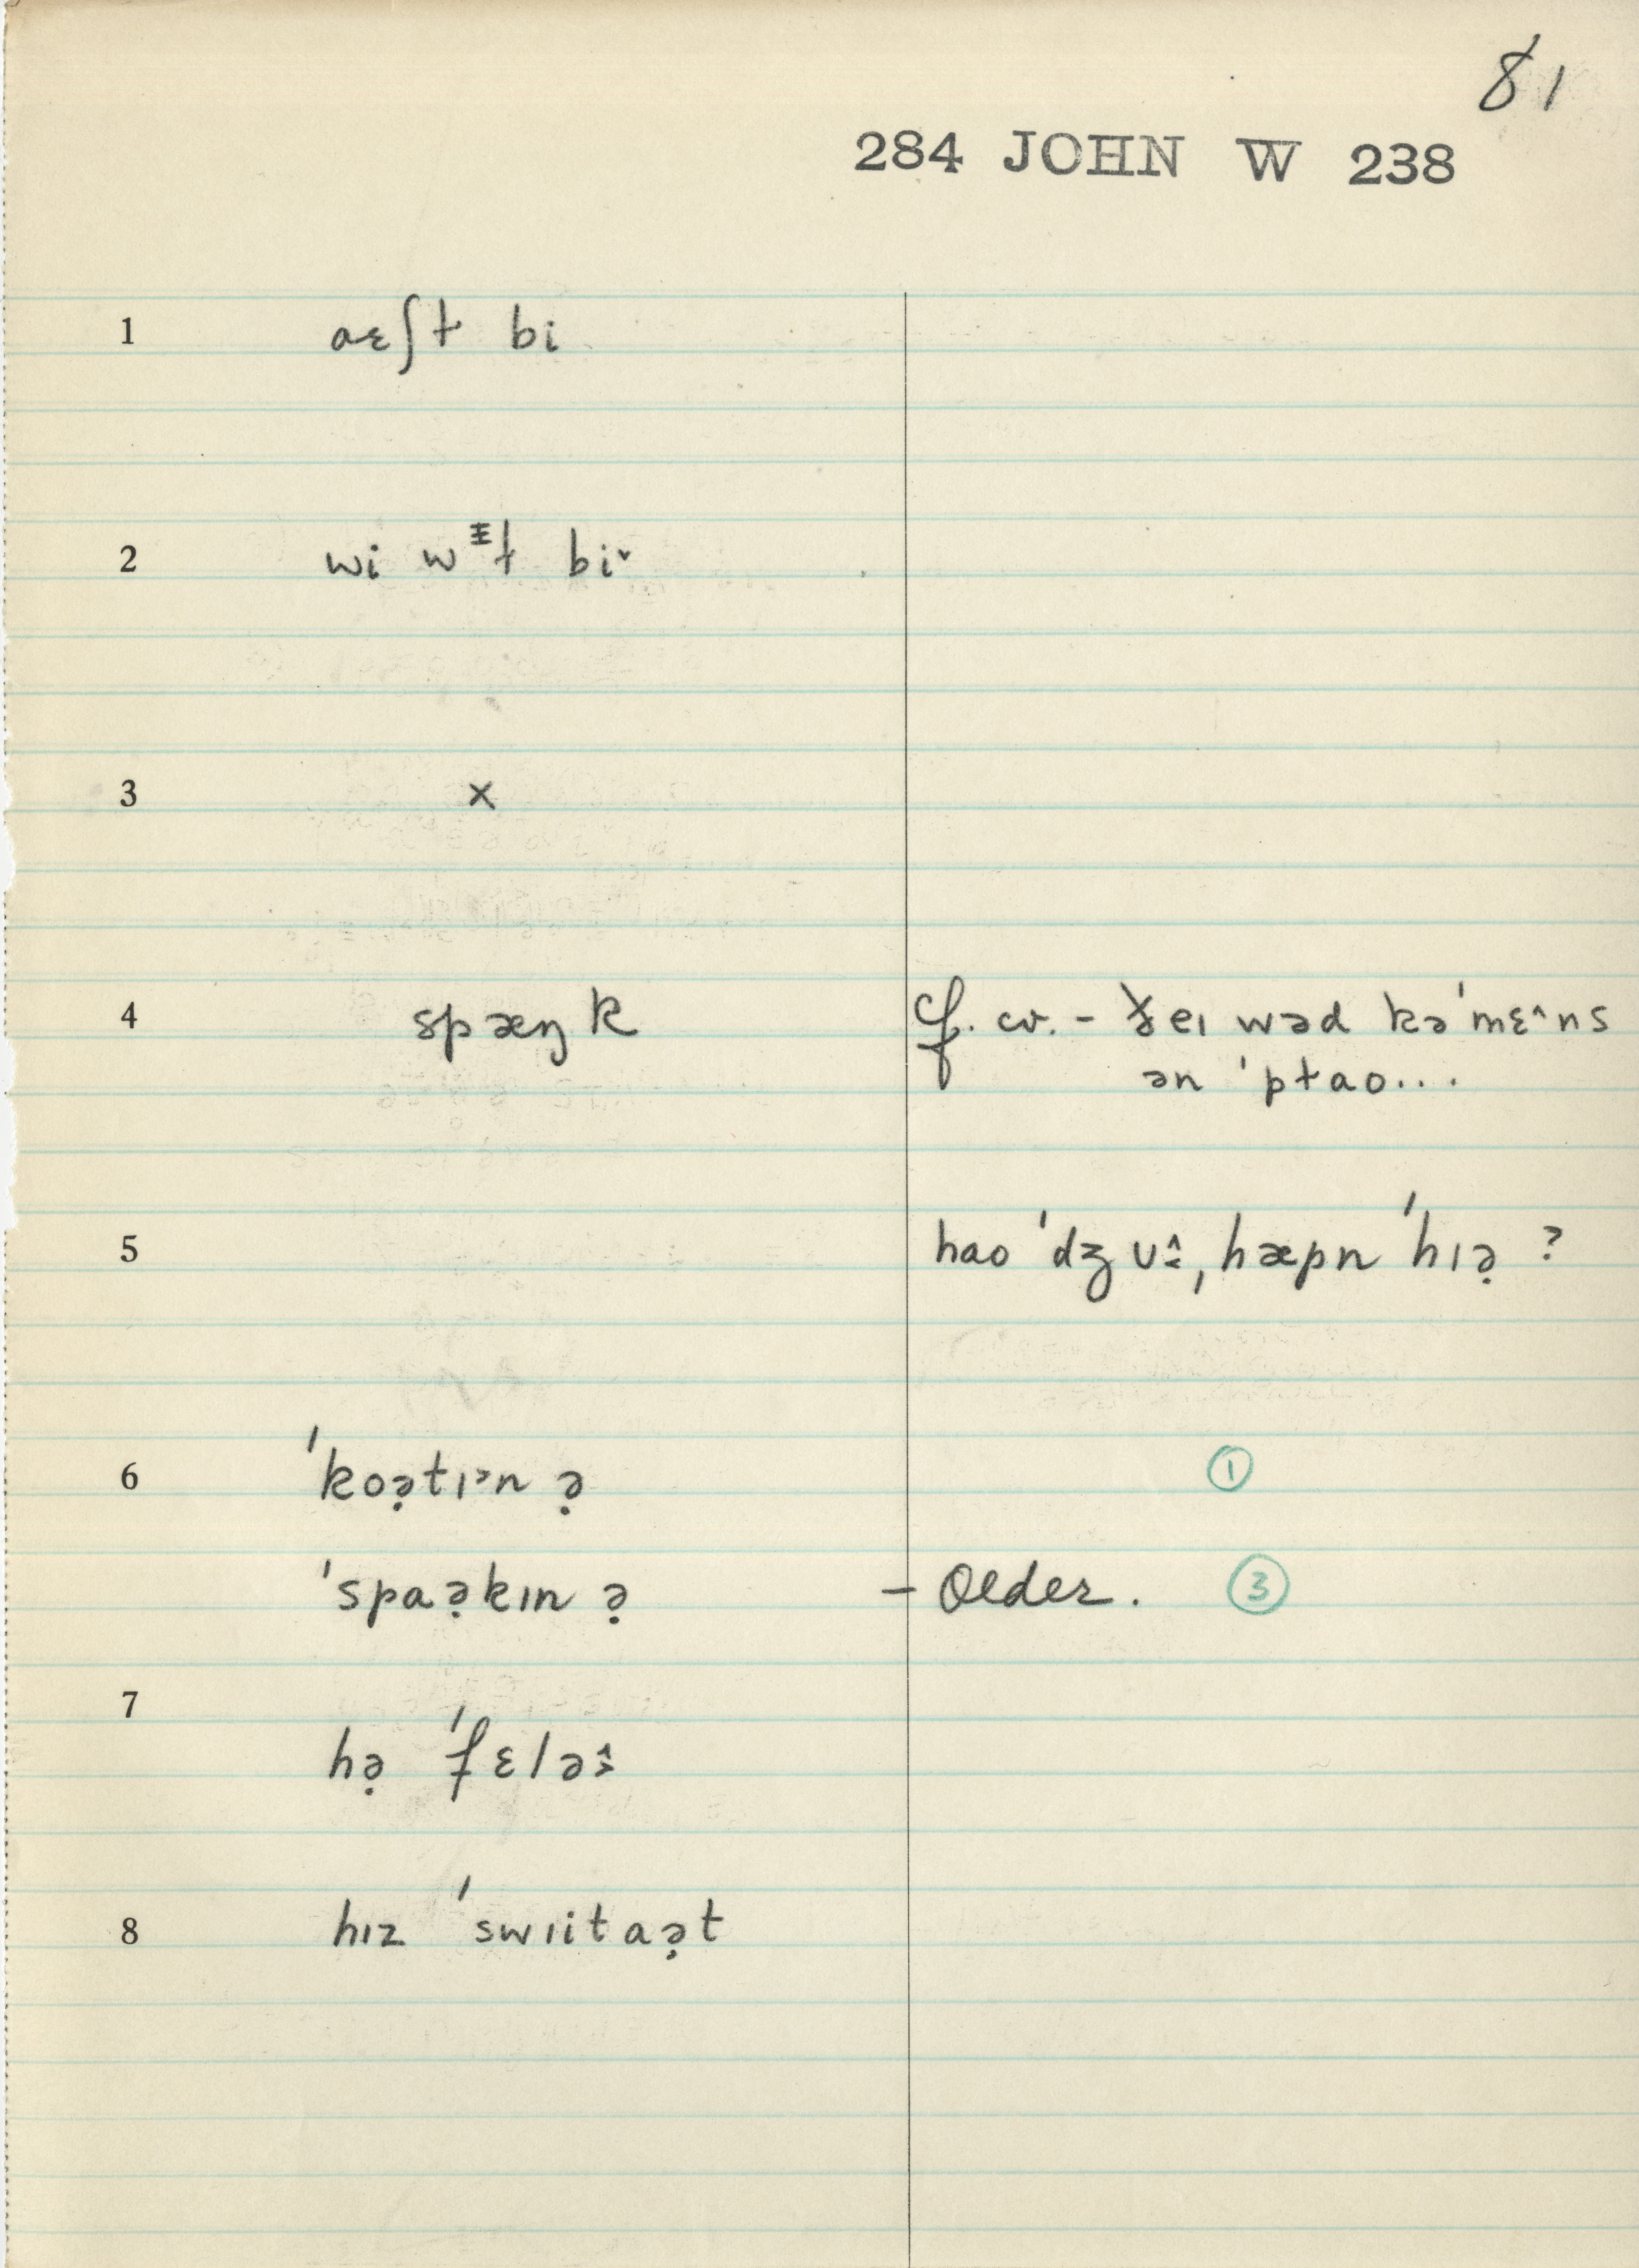 81
284 JOHN W 238
1 aɛʃɫ bi
2 wi wᵻɫ bi˅
3 ×
4 spæŋk cf. cv. - ðeɪ wəd kə'mɛ^ns
ən 'pɫao...
5 hao 'dʒʊ, hæpn 'hɪə̣ ?
6 'koə̣tɪᵊn ə̣ ①
'spaə̣kɪn ə̣ - Older. ③
7 hə̣ 'fɛlə
8 hɪz 'swɪitaə̣t